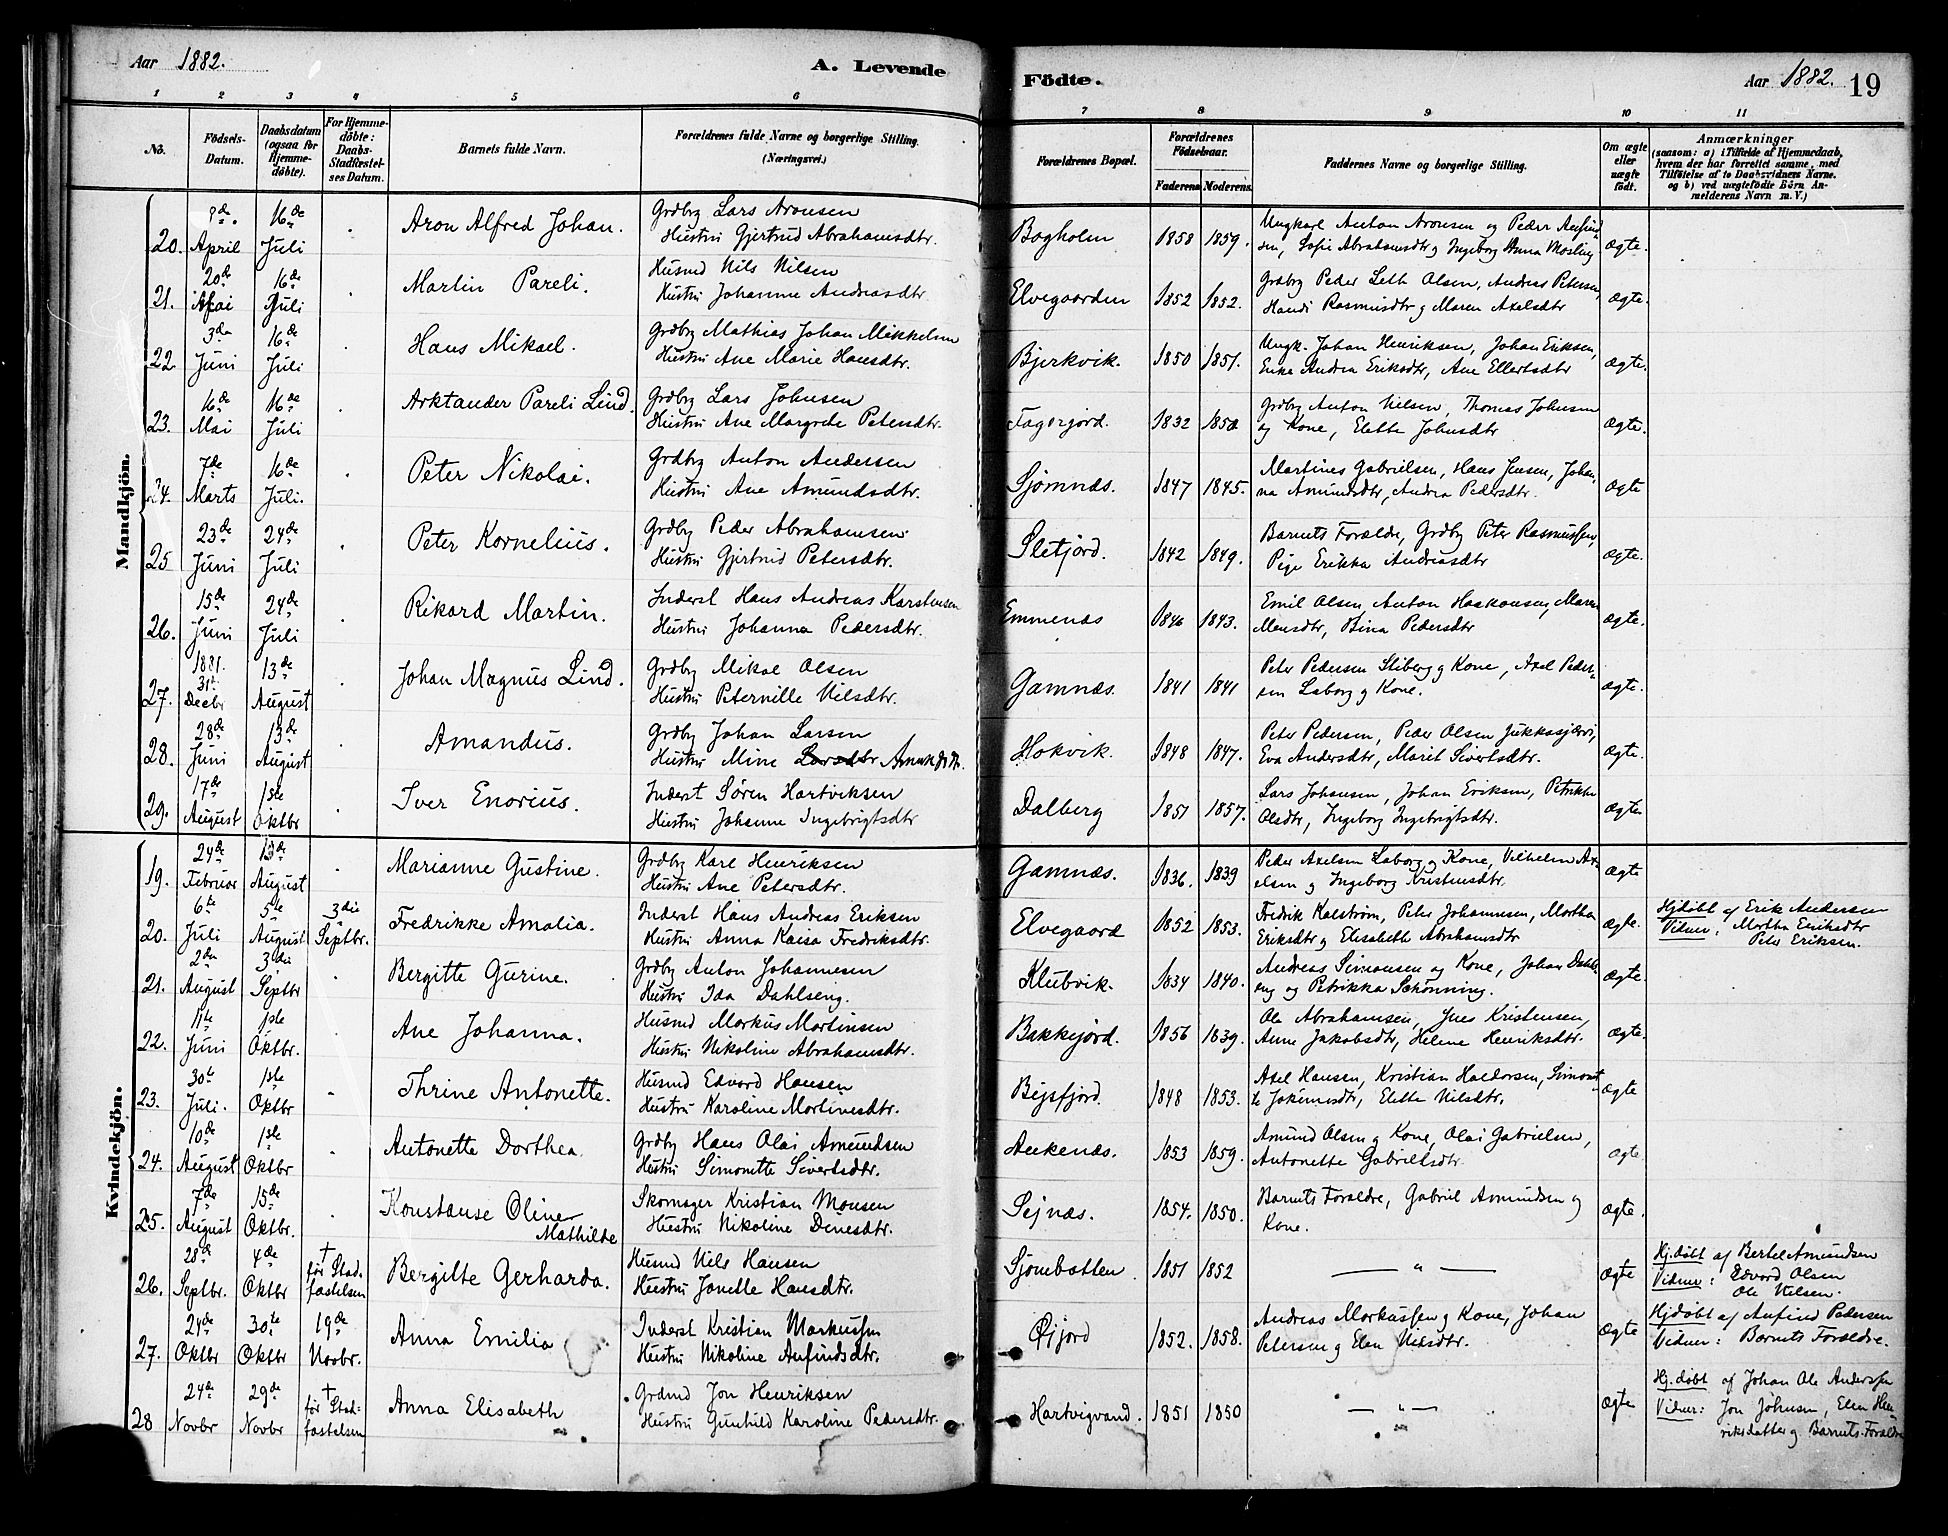 Aar 1882.
A. Levende
Födte.
Aar 1882.
19
1 2 3 4 5 6 7 8 9 10 11
No.
Födsels-Datum.
Daabsdatum (ogsaa for Hjemme-döbte).
For Hjemme-döbte: Daabs-Stadfæstel-ses Datum.
Barnets fulde Navn.
Forældrenes fulde Navne og borgerlige Stilling. (Næringsvei.)
Forældrenes Bopæl.
Forældrenes Födselsaar.
Faderens Moderens
Faddernes Navne og borgerlige Stilling.
Om ægte eller uægte födt.
Anmærkninger
(saasom: a) i Tilfælde af Hjemmedaab, hvem der har forrettet samme, med Tilföielse af to Daabsvidners Navne. og b) ved uægtefödte Börn An-melderens Navn m. V.)
Mandkjön.
20. April 16de Juli Aron Alfred Johan. Grdbr Lars Aronsen Bogholm 1858 1859. Ungkarl Anton Aronsen og Peder
Hustru Gjertrud Abrahamsdtr. sen, Sofie Abrahamsdtr og Ingeborg Anna Mosling ægte.
21. 20de Mai 16de Juli Martin Pareli. Husmd Nils Nilsen Elvegaarden 1852 1852. Grdbr Peder Leth Olsen, Andreas Petersen,
Hustru Johanne Andreasdtr Rasmusdtr og Maren Axelsdtr ægte.
22 3de Juni 16de Juli Hans Mikael. Grdbr Mathias Johan Mikkelsen Bjerkvik. 1850 1851. Ungk. Johan Henriksen, Johan Eriksen,
Hustru Ane Marie Hansdtr. Andrea Eriksdtr, Ane Ellertsdtr ægte.
23. 16de Mai 16de Juli Arktander Pareli Lind. Grdbr Lars Johnsen 1832 1850 Grdbr Anton Nilsen, Thomas Johnsen
Hustru Ane Margrete Petersdtr. og Kone, Elette Johnsdtr ægte.
24. 7de Marts 16de Juli. Peter Nikolai. Grdbr Anton Andersen Sjømnæs. 1847 1845. Martines Gabrielsen, Hans Jensen, Johan-
Hustru Ane Amundsdtr. na Amundsdtr, Andrea Pedersdtr. ægte
25 23de Juni 24de Juli Peter Kornelius. Grdbr Peder Abrahamsen Sletjord. 1842 1849. Barnets Forældre, Grdbr Peter Rasmussen,
Hustru Gjertrud Petersdtr. Pige Erikka Andreasdtr ægte.
26. 15de Juni 24de Juli Rikard Martin. Inderst Hans Andreas Karstensen Emmenæs 1846 1843. Emil Olsen, Anton Haakonsen, Maren
Hustru Johanna Pedersdtr. Monsdtr, Bina Pedersdtr ægte.
27. 1881. 31te Decbr 13de August Johan Magnus Lind. Grdbr Mikal Olsen Gamnæs. 1841 1841 Peter Pedersen Stiberg og Kone, Axel Peder-
Hustru Peternille Nilsdtr. sen Laborg og Kone. ægte.
28. 28de Juni 13de August Amandus. Grdbr Johan Larsen Hokvik. 1848 1847. Peter Pedersen, Peder Olsen Jukkasjærvi,
Hustru Mine Larsdtr Amundsdtr. Eva Andersdtr, Marit Sivertsdtr. ægte.
29. 17de August 1ste Oktbr Iver Enorius. Inderst Søren Hartviksen Dalberg 1851 1857. Lars Johansen, Johan Eriksen, Petrikke
Hustru Johanne Ingebrigtsdtr Olsdtr, Ingeborg Ingebrigtsdtr. ægte
Kvindekjön.
19. 24de Februar 13de August Marianne Gustine. Grdbr Karl Henriksen Gamnæs. 1836. 1839 Peder Axelsen Laborg og Kone, Vilhelm Ax-
Hustru Ane Petersdtr. elsen og Ingeborg Kristensdtr. ægte
20. 6te Juli 5te August 3die Septbr. Fredrikke Amalia. Inderst Hans Andreas Eriksen Elvegaard 1852 1853. Fredrik Kalstrøm, Peter Johannesen, Martha
Hustru Anna Kaisa Fredriksdtr. Eriksdtr og Elisabeth Abrahamsdtr ægte. Hjdøbt af Erik Andersen
Vidner: Martha Eriksdtr
Peter Eriksen.
21. 2den August 3die Septbr Bergitte Gurine. Grdbr Anton Johannesen Klubvik. 1834 1840. Andreas Simonsen og Kone, Johan Dahls-
Hustru Ida Dahlseng. eng og Petrikka Schønning. ægte.
22. 11te Juni 1ste Oktbr. Ane Johanna. Husmd Markus Martinsen Bakkejord. 1856 1839. Ole Abrahamsen, Jens Kristensen,
Hustru Nikoline Abrahamsdtr. Anne Jakobsdtr, Helene Henriksdtr. ægte.
23. 30te Juli. 1ste Oktbr Thrine Antonette. Husmd Edvard Hansen Bejsfjord. 1848 1853. Axel Hansen, Kristian Haldorsen, Simonet-
Hustru Karoline Martinesdtr. te Jokimsdtr, Elette Nilsdtr. ægte
24. 10de August 1ste Oktbr Antonette Dorthea. Grdbr Hans Olai Amundsen Ankenæs. 1853 1859. Amund Olsen og Kone, Olai Gabrielsen,
Hustru Simonette Sivertsdtr. Antonette Gabrielsdtr. ægte
25. 7de August 15de Oktbr. Konstanse Oline Mathilde Skomager Kristian Monsen 1854. 1850. Barnets Forældre, Gabriel Amundsen og
Hustru Nikoline Denesdtr. Kone. ægte.
26. 28de Septbr. 4de Oktbr † før Stad-fæstelsen Bergitte Gerharda. Husmd Nils Hansen Sjømbotten 1851 1852 — " —
Hustru Janette Hansdtr. ægte Hj.døbt af Bertel Amundsen
Vidner: Edvard Olsen
Ole Nilsen.
27. 24de Oktbr 30te Oktbr 19de Novbr. Anna Emilia Inderst Kristian Markussen Øijord 1852. 1858. Andreas Markussen og Kone, Johan
Hustru Nikoline Anfindsdtr. Petersen og Elen Nilsdtr. ægte Hjdøbt af Anfind Pedersen
Vidner: Barnets Forældre.
28 24de Novbr 29de Novbr † før Stad-fæstelsen Anna Elisabeth Grdmd Jon Henriksen Hartvigvand. 1851 1850 — " —
Hustru Gunhild Karoline Pedersdtr. ægte Hj.døbt af Johan Ole Anderssen
Vidner: Jon Johnsen, Elen Hen-
riksdatter og Barnets Forældre